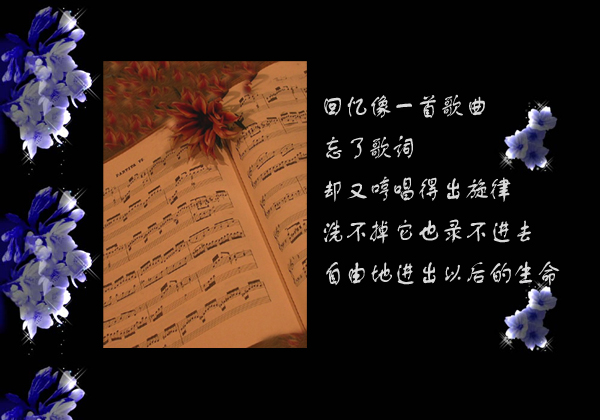 回忆像一首歌曲
忘了歌词
却又哼唱得出旋律
洗不掉它也录不进去
自由地进出以后的生命